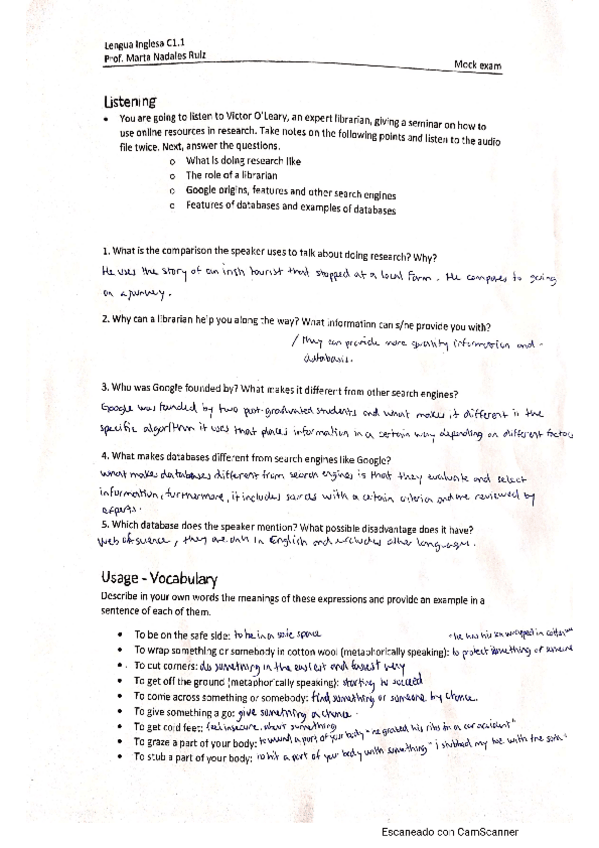 Lengua Inglesa C1.1
Prof. Marta Nadales Ruiz
Mock exam
Listening
• You are going to listen to Victor O'Leary, an expert librarian, giving a seminar on how to
use online resources in research. Take notes on the following points and listen to the audio
file twice. Next, answer the questions.
o What is doing research like
o The role of a librarian
o Google origins, features and other search engines
o Features of databases and examples of databases
1. What is the comparison the speaker uses to talk about doing research? Why?
He uses the story of an irish tourist that stopped at a local farm. He compares to going
on a journey.
2. Why can a librarian help you along the way? What information can s/he provide you with?
/ they can provide more quality information and
databasis.
3. Who was Google founded by? What makes it different from other search engines?
Google was funded by two post-graduated students and what makes it different is the
specific algorithm it uses that places information in a certain way depending on different factors
4. What makes databases different from search engines like Google?
what makes databases different from search engines is that they evaluate and select
information, furthermore, it includes with a certain criterion and are reviewed by
experts.
5. Which database does the speaker mention? What possible disadvantage does it have?
Web of science, they are only in English and excludes other languages.
Usage - Vocabulary
Describe in your own words the meanings of these expressions and provide an example in a
sentence of each of them.
• To be on the safe side: to be in a safe space
"he has his son wrapped in cotton
• To wrap something or somebody in cotton wool (metaphorically speaking): to protect something or someone
• To cut corners: do something in the easiest and fastest way
• To get off the ground (metaphorically speaking): starting to succeed
• To come across something or somebody: find something or someone by chance.
• To give something a go: give something a chance.
• To get cold feet: feel insecure about something
• To graze a part of your body: to wound a part of your body "he grazed his ribs in a car accident"
• To stub a part of your body: to hit a part of your body with something "i stubbed my toe with the sofa"
Escaneado con CamScanner